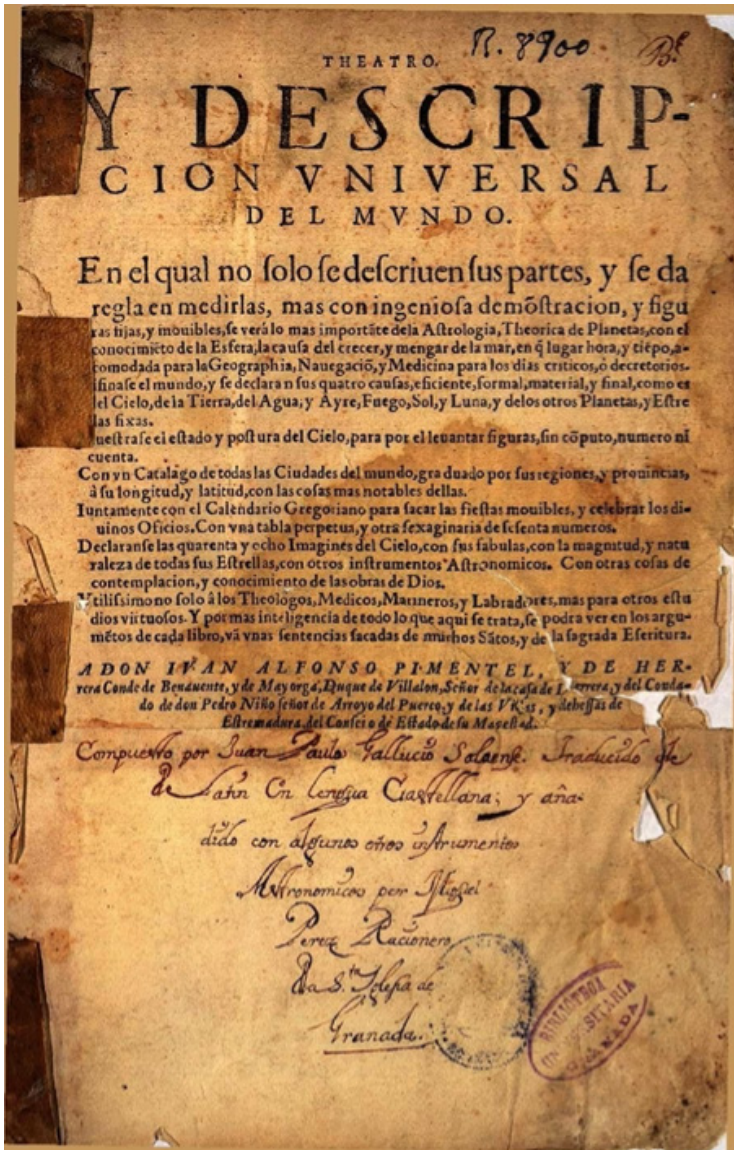 R. 8900
THEATRO.
Y DESCRIP-
CION VNIVERSAL
DEL MVNDO.
En el qual no solo se descriuen sus partes, y se da
regla en medirlas, mas con ingeniosa demõstracion, y figu
ras fijas, y mouibles, se verá lo mas importãte dela Astrologia, Theorica de Planetas, con el
conocimiẽto de la Esfera; la causa del crecer, y mengar de la mar, en q̃ lugar hora, y tiẽpo, a-
comodada para la Geographia, Nauegaciõ, y Medicina para los dias criticos, ò decretorios.
ifinase el mundo, y se declaran sus quatro causas, eficiente, formal, material, y final, como es
el Cielo, de la Tierra, del Agua, y Ayre, Fuego, Sol, y Luna, y delos otros Planetas, y Estre
las fixas.
uestrase el estado y postura del Cielo, para por el leuantar figuras, sin cõputo, numero ni
cuenta.
Con vn Catalago de todas las Ciudades del mundo, graduado por sus regiones, y prouincias,
à su longitud, y latitud, con las cosas mas notables dellas.
Iuntamente con el Calendario Gregoriano para sacar las fiestas mouibles, y celebrar los di-
uinos Oficios. Con vna tabla perpetua, y otra sexaginaria de sesenta numeros.
Declaranse las quarenta y ocho Imagines del Cielo, con sus fabulas, con la magnitud, y natu
raleza de todas sus Estrellas, con otros instrumentos Astronomicos. Con otras cosas de
contemplacion, y conocimiento de las obras de Dios.
Vtilissimo no solo à los Theologos, Medicos, Marineros, y Labradores, mas para otros estu
dios virtuosos. Y por mas inteligencia de todo lo que aqui se trata, se podra ver en los argu-
mẽtos de cada libro, vã vnas sentencias sacadas de muchos Sãtos, y de la sagrada Escritura.
A DON IVAN ALFONSO PIMENTEL, Y DE HER-
rera Conde de Benauente, y de Mayorga, Duque de Villalon, Señor de la casa de Herrera, y del Conda-
do de don Pedro Niño señor de Arroyo del Puerco, y de las , y dehessas de
Estremadura, del Consejo de Estado de su Magestad.
Compuesto por Juan Paulo Gallucio Saloense. Traducido de
de Latin En lengua Castellana; y aña-
dido con algunos otros instrumentos
Astronomicos por Miguel
Perez Racionero
Da S.ta Iglesia de
Granada.
BIBLIOTECA
UNIVERSITARIA
GRANADA